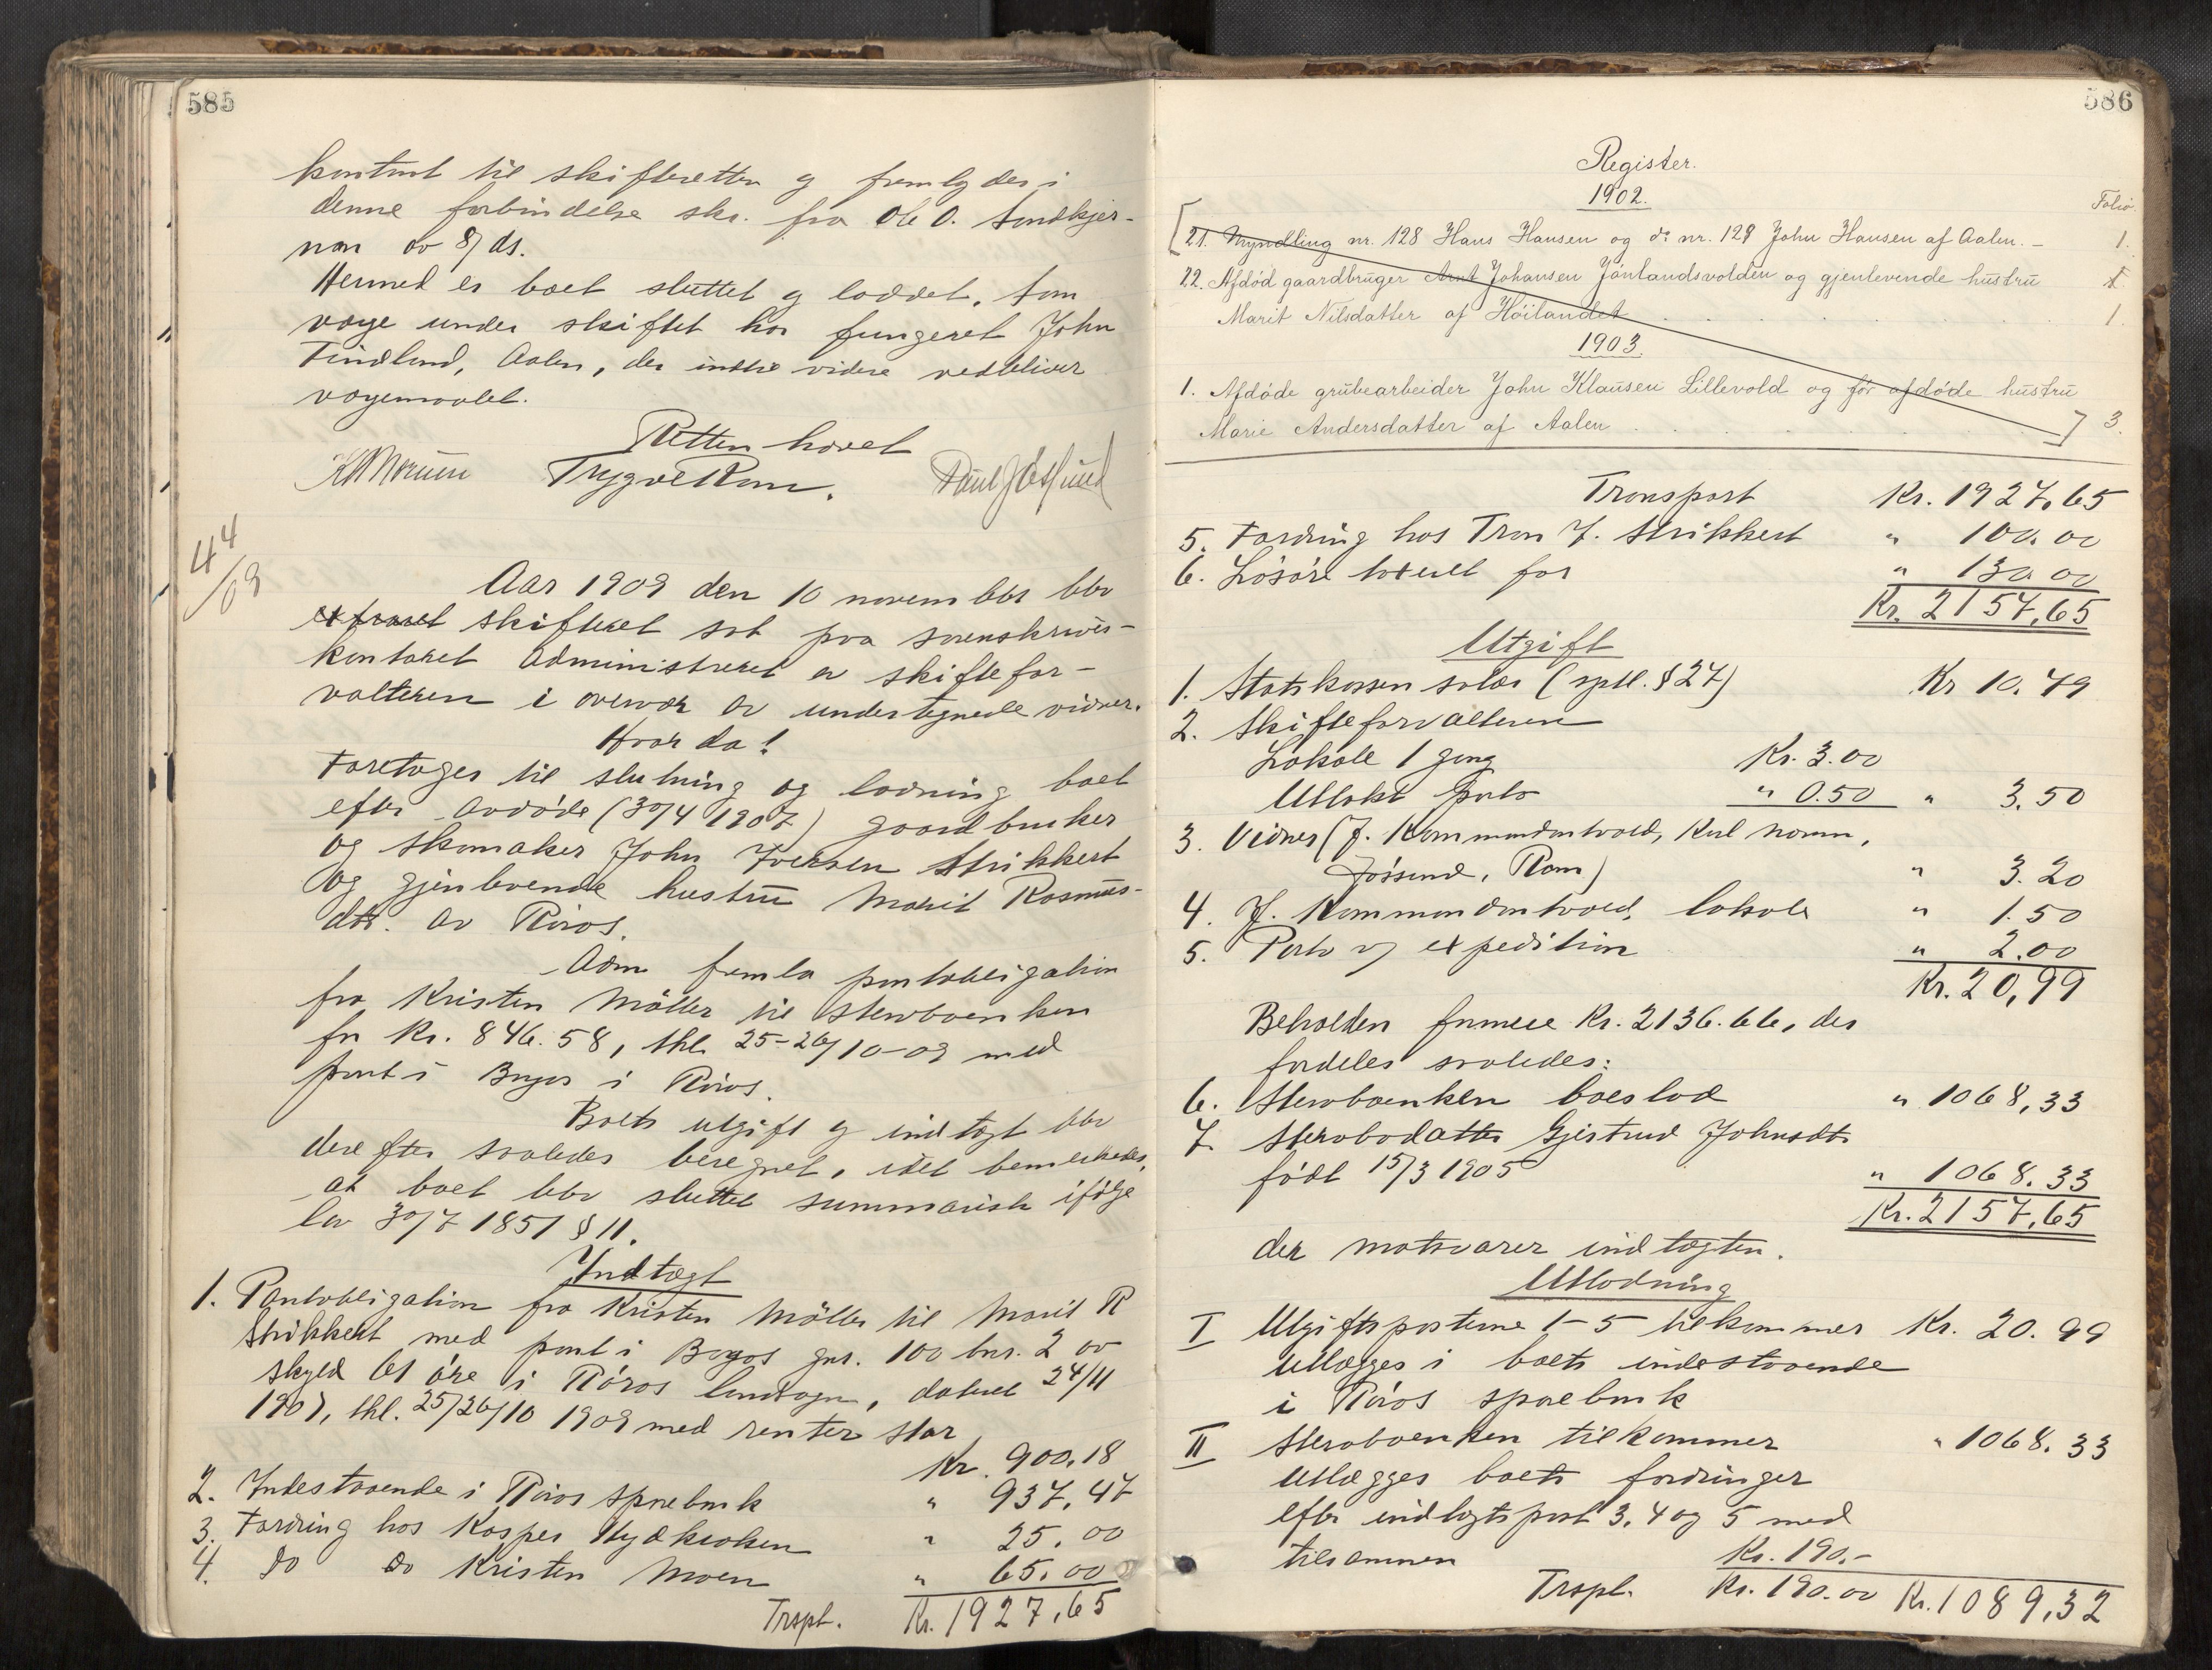 585
kontant til skifteretten og fremlydes i
denne forbindelse skr. fra Ole O. Sundkjer-
nan av 8/ ds.
Hermed er boet sluttet og loddet. Som
verge under skiftet har fungeret John
Findlund, Aalen, der indtil videre vedbliver
vergemaalet.
Retten hævet
Trygve Ram.
44/09
Aar 1909 den 10 november blev
extraret skifteret sat paa sorenskriver-
kontoret administreret av skiftefor-
valteren i overvær av undertegnede vidner.
Hvor da!
Foretoges til slutning og lodning boet
efter avdøde (30/4 1907) gaardbruker
og skomaker John Iversen Strikkert
og gjenlevende hustru Marit Rasmus-
dtr. av Røros.
Adm. fremla pantobligation
fra Kristen Möller til Stervboenken
for Kr. 846.58, thl. 25-26/10-09 med
pant i Borgos i Røros.
Boets utgift og indtægt blev
derefter saaledes beregnet, idet bemerkedes,
at boet blev sluttet summarisk ifølge
lov 30/7 1851 § 11.
Indtægt
1. Pantobligation fra Kristen Möller til Marit R
Strikkert med pant i Borgos gnr. 100 bnr. 2 av
skyld 61 øre i Røros landsogn, dateret 24/11
1907, thl. 25/26/10 1909 med renter stor
Kr. 900,18
2. Indestaaende i Røros sparebank " 937,47
3. Fordring hos Kasper Rydkroken " 25.00
4. Do Do Kristen Moen " 65.00
Trspt. Kr. 1927,65
586
Register.
1902.
Folio
21. Myndling nr. 128 Hans Hansen og do nr. 129 John Hansen af Aalen. – 1.
22. Afdød gaardbruger Arnt Johansen Jönlandsvolden og gjenlevende hustru
Marit Nilsdatter af Høilandet 1.
1903.
1. Afdøde grubearbeider John Klausen Lillevold og før afdøde hustru
Marie Andersdatter af Aalen 3.
Transport Kr. 1927,65
5. Fordring hos Tron J. Strikkert " 100.00
6. Løsøre taxeret for " 130.00
Kr. 2157,65
Utgift
1. Statskassen salær (sptl. § 27) Kr 10.79
2. Skifteforvalteren
Lokale 1 gang Kr. 3.00
Utlakt porto " 0.50 " 3.50
3. Vidner (J. Kommandantvold, Karl Norum,
Jøssund, Ram) " 3.20
4. J. Kommandantvold, lokale " 1.50
5. Porto og expedition " 2.00
Kr. 20,99
Beholden formue Kr. 2136.66, der
fordeles saaledes:
6. Stervboenken boeslod " 1068,33
7. Stervbodatter Gjertrud Johnsdtr
født 15/3 1905 " 1068.33
Kr. 2157,65
der motsvarer indtægten.
Utlodning
I Utgiftsposterne 1-5 tilkommer Kr. 20.99
utlægges i boets indestaaende
i Røros sparebank
II Stervboenken tilkommer " 1068.33
utlægges boets fordringer
efter indtægtspost 3, 4 og 5 med
tilsammen Kr. 190.-
Trspt. Kr. 190.00 Kr. 1089,32